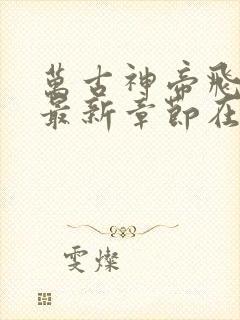 萬古神帝飛
最新章節在
雯燦